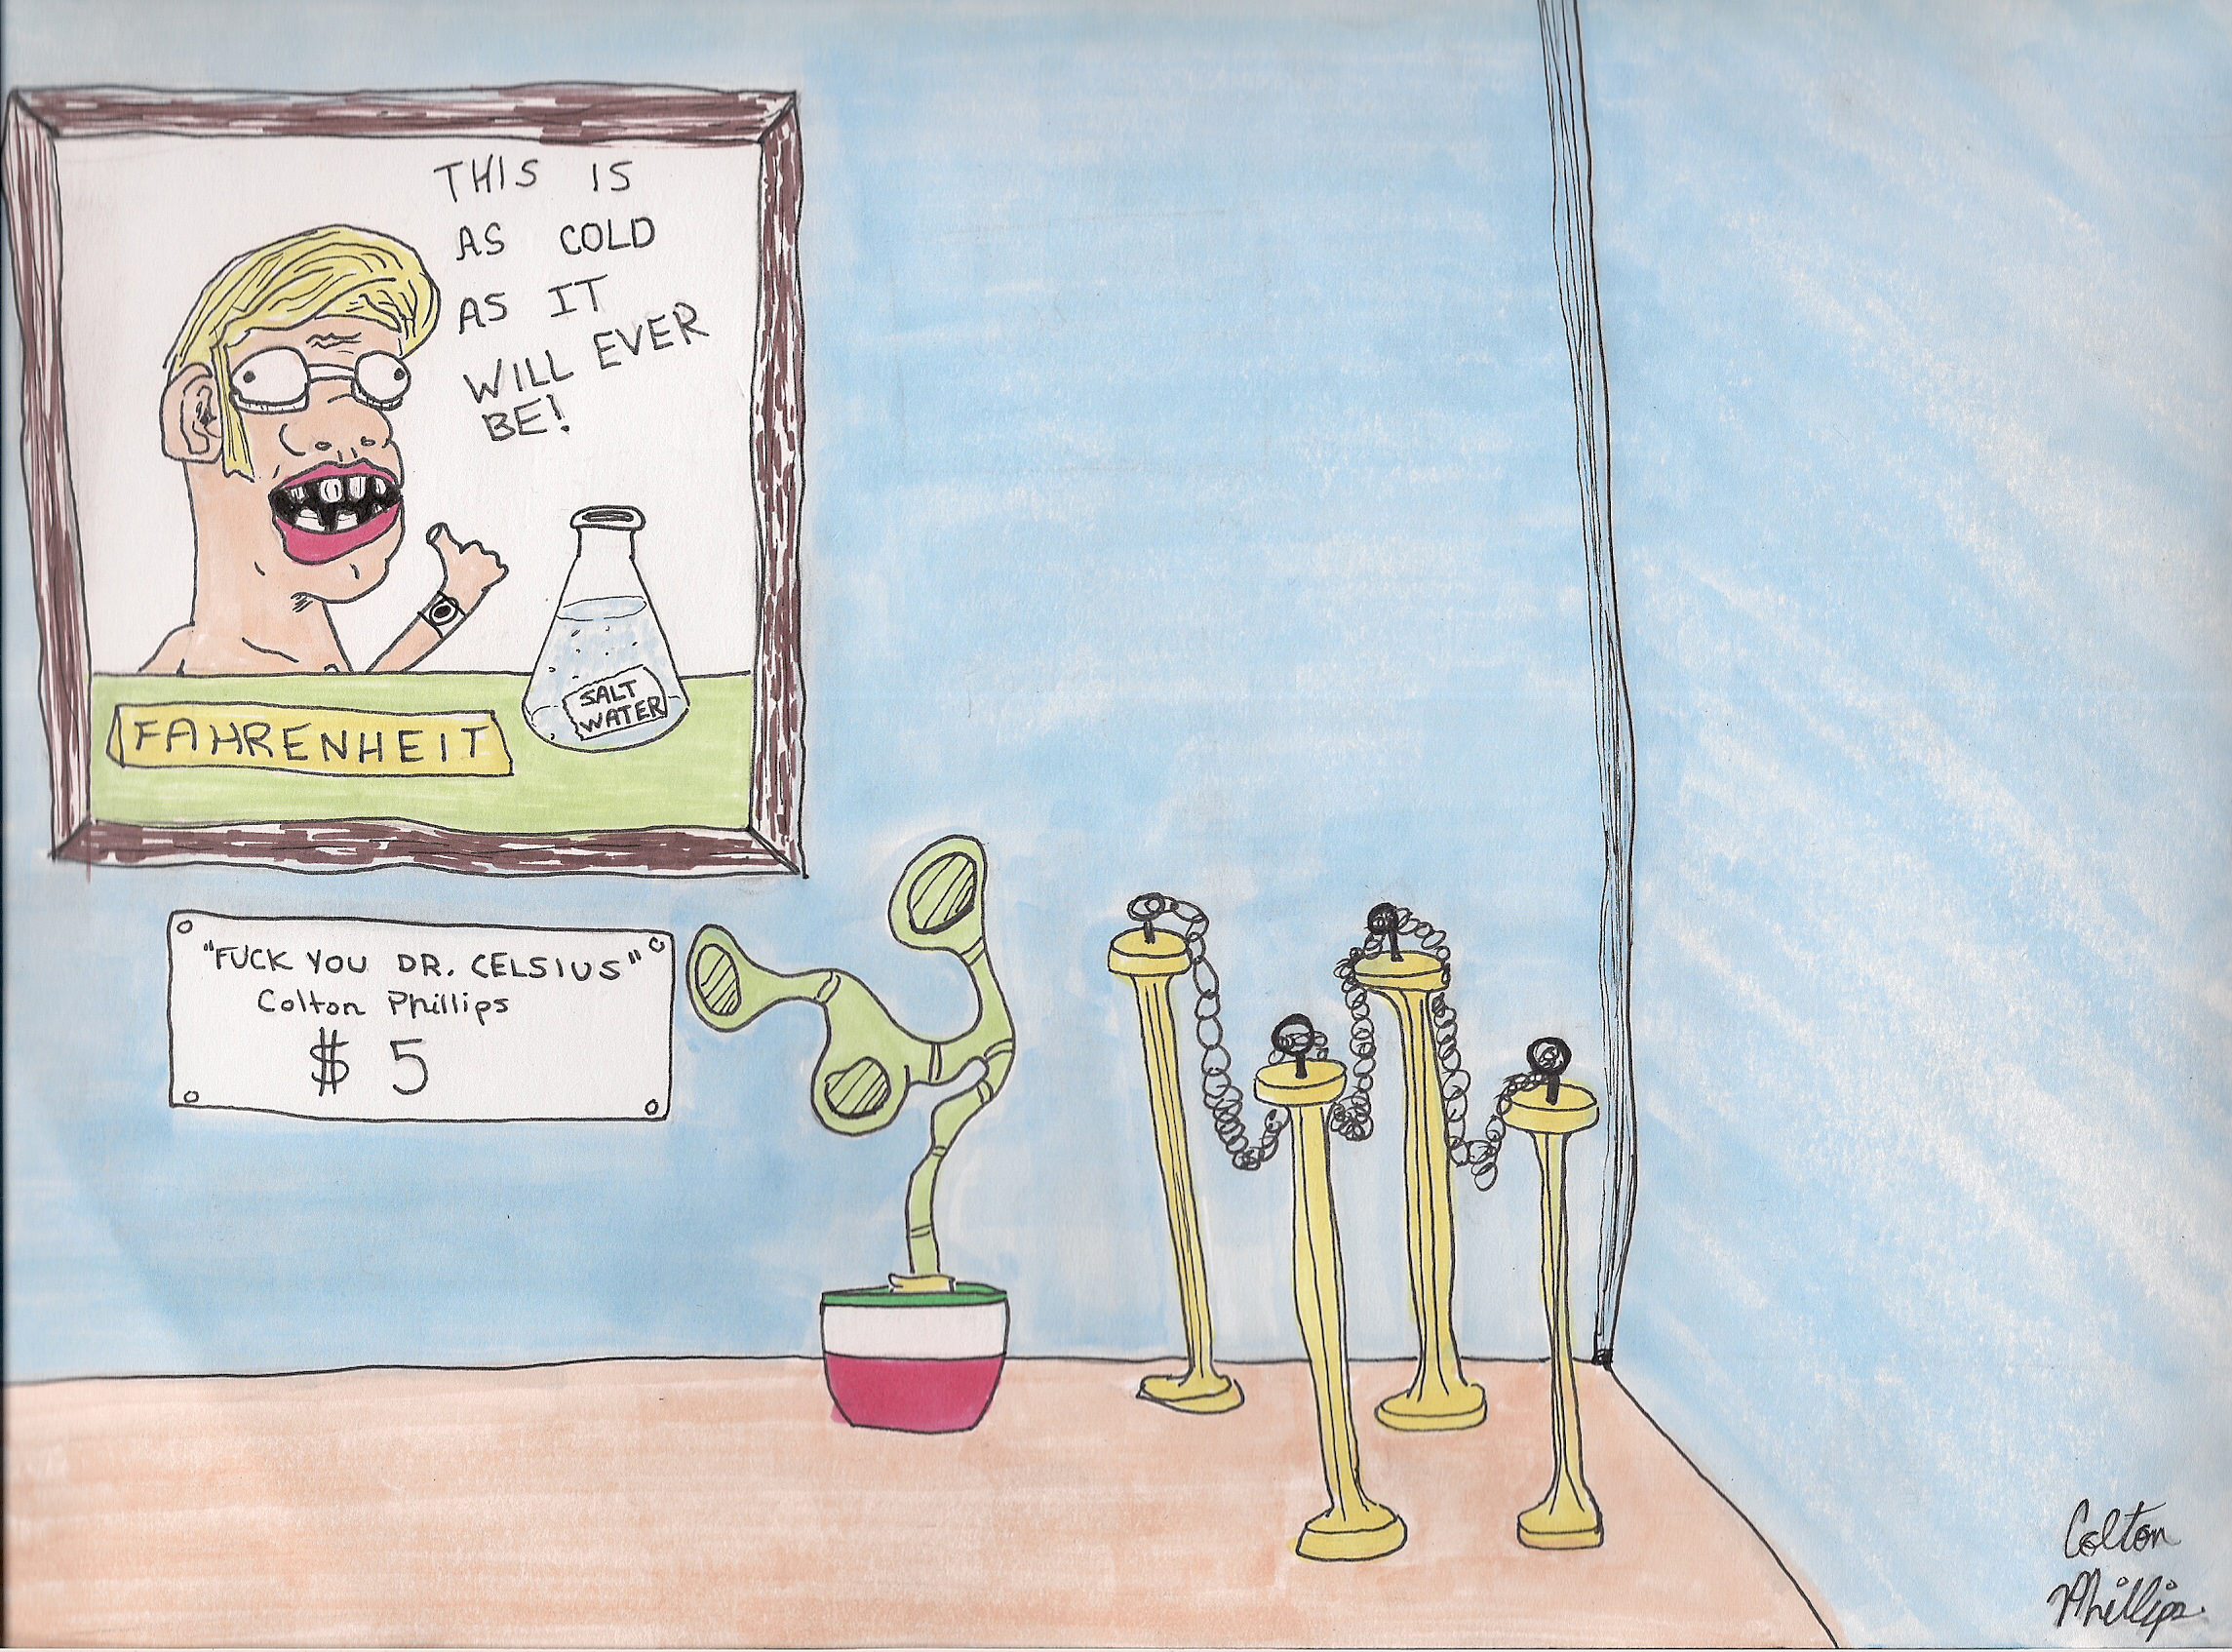 THIS IS
AS COLD
AS IT
WILL EVER
BE!
SALT
WATER
FAHRENHEIT
"FUCK YOU DR. CELSIUS"
Colton Phillips
$ 5
Colton
Phillips